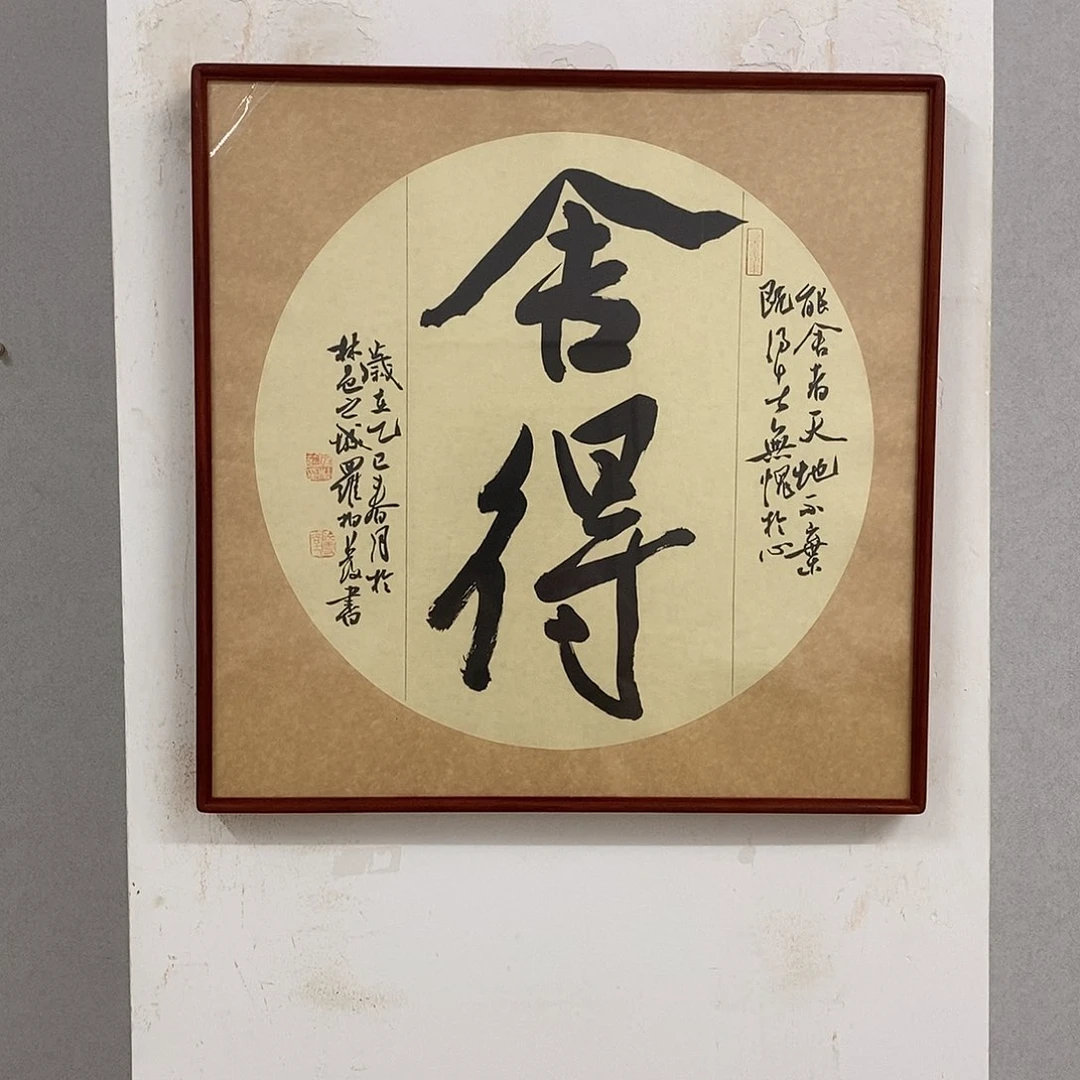 舍得
能舍者天地不棄
既得中士無愧於心
歲在乙巳春月於
林邑之城羅柏茂書